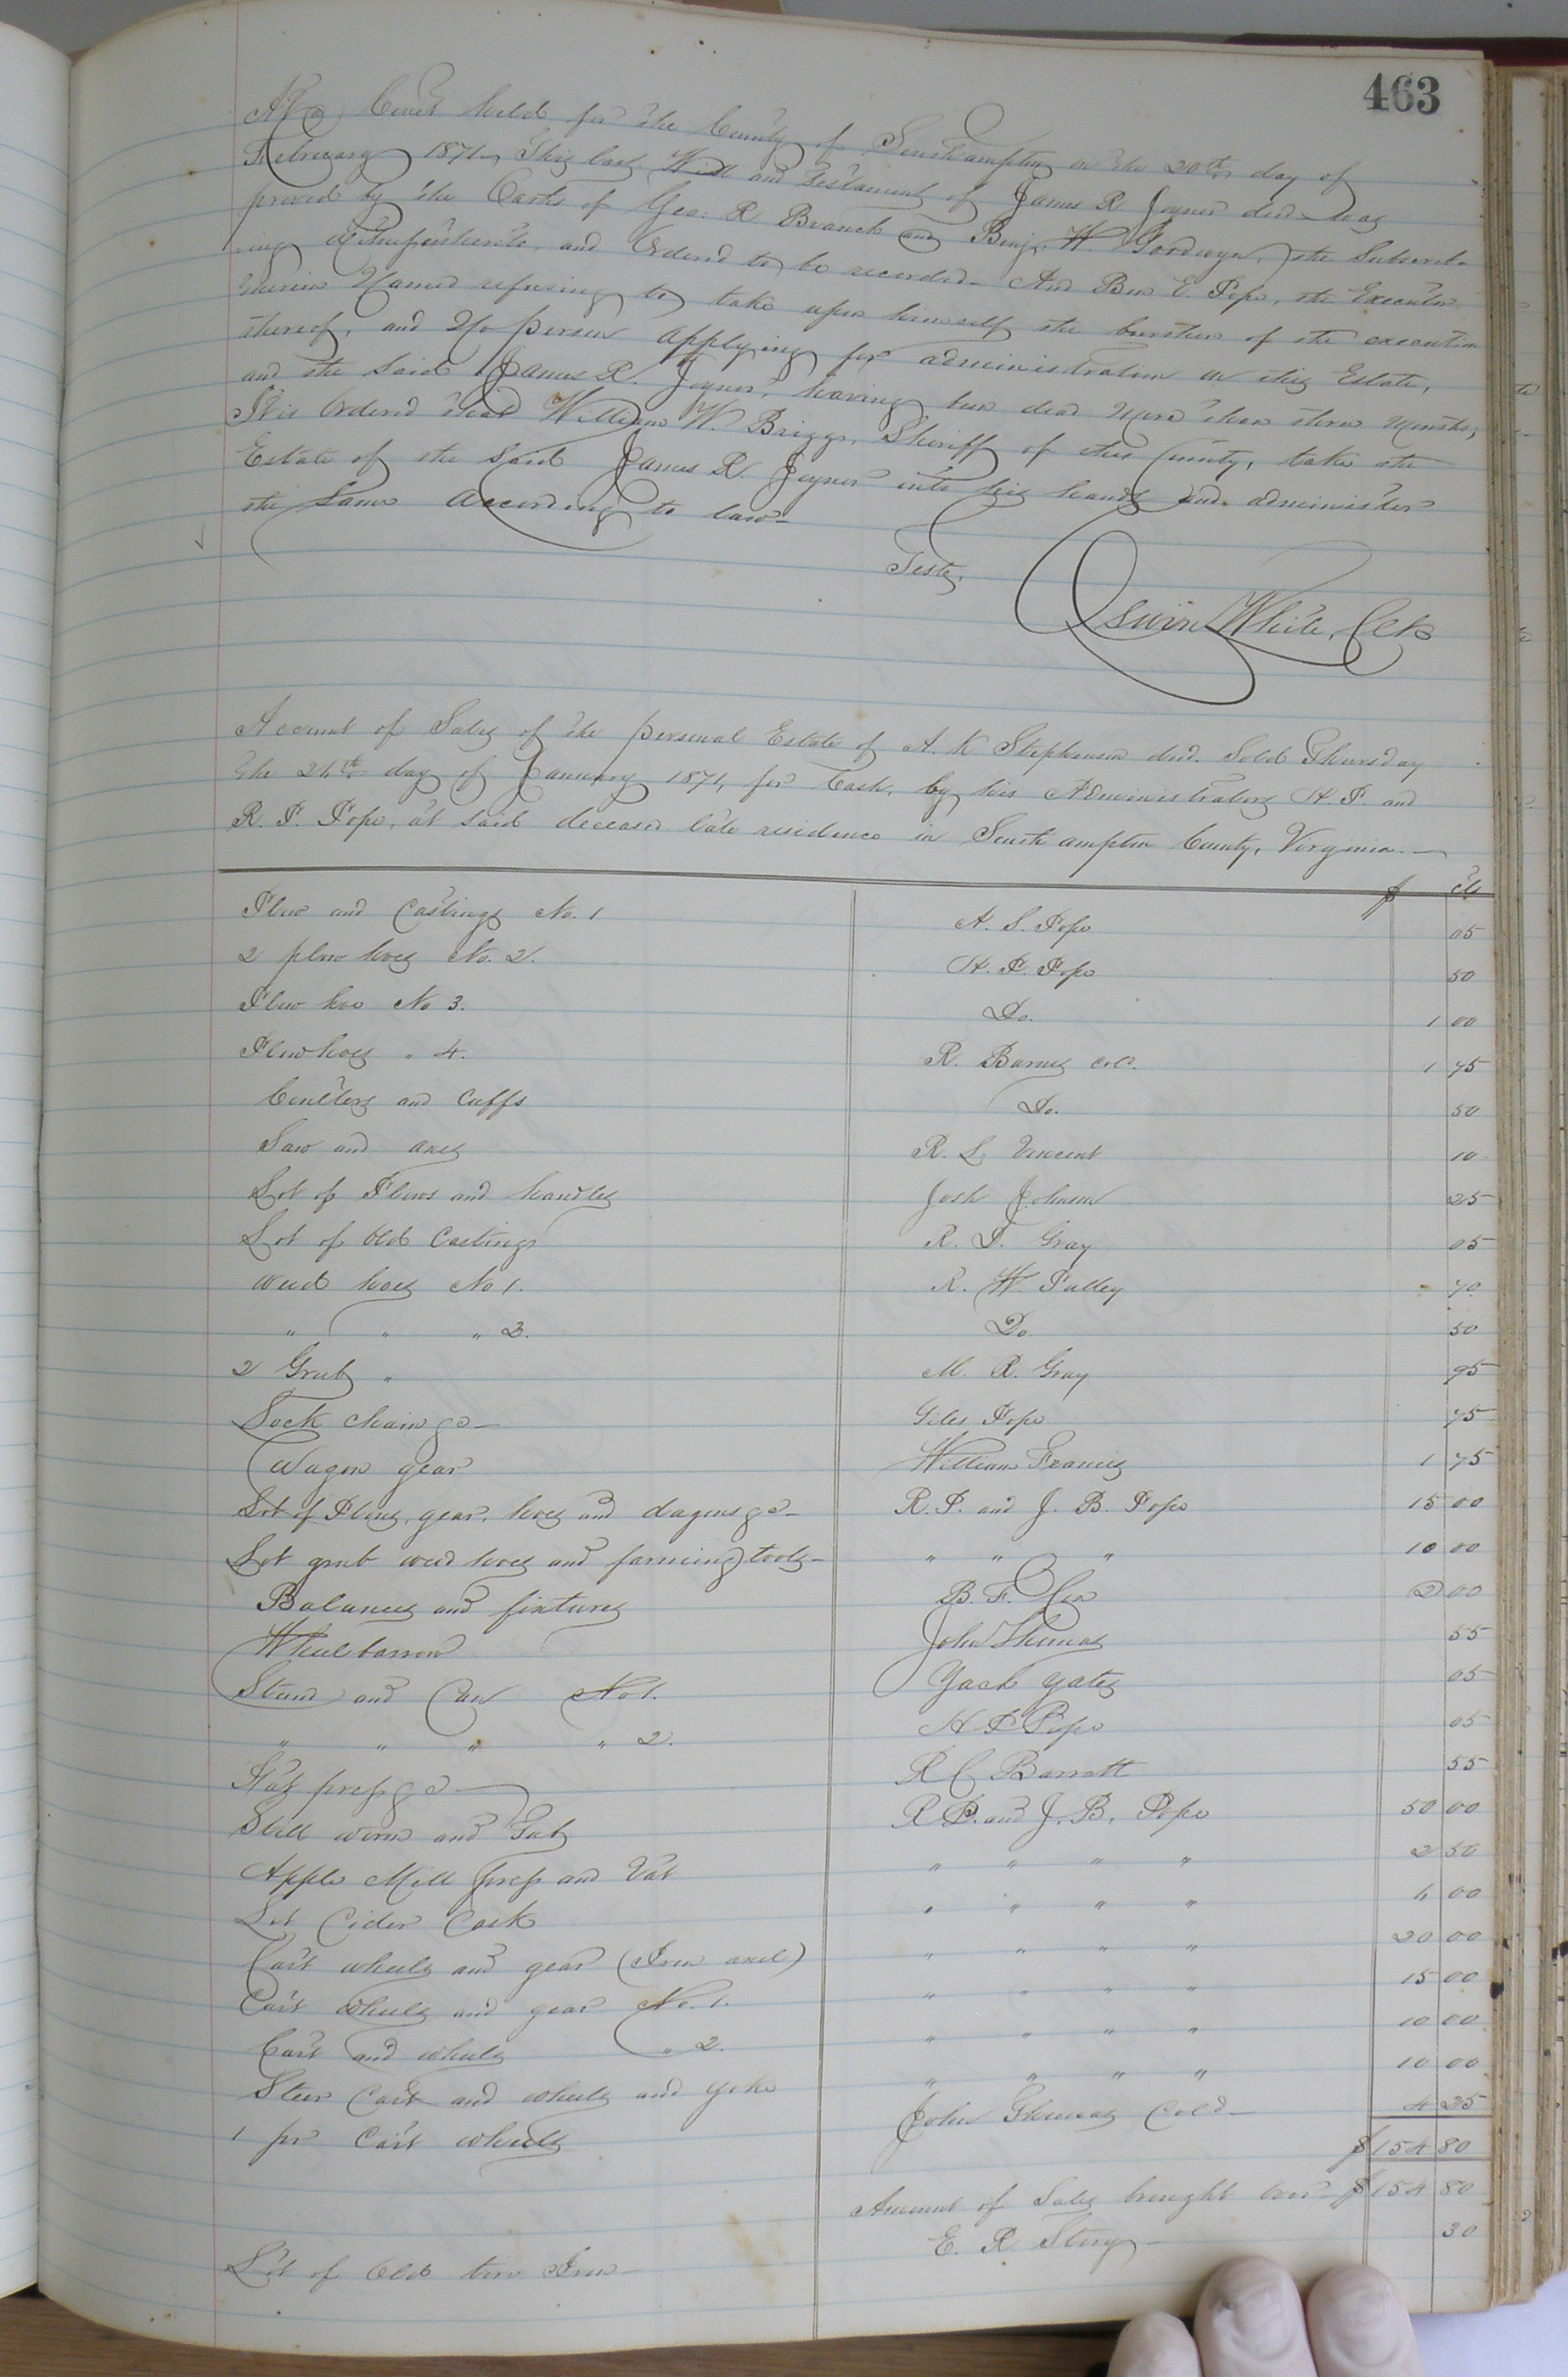 463
At a Court held for the County of Southampton on the 20th day of
February 1871, This last Will and Testament of James R. Joyner decd was
proved by the Oaths of Geo: R. Branch and Benj. W. Goodwyn, the Subscrib-
ing Witnesses thereto, and Ordered to be recorded- And Ben E. Pope, the Executor
therein Named refusing to take upon himself the burthen of the execution
thereof, and No person applying for administration on this Estate,
and the Said James R. Joyner, having been dead more than three months,
It is Ordered that William W. Briggs, Sheriff of this County, take the
Estate of the Said James R. Joyner into his hands and administer
the Same according to law-
Teste,
Oswin White, Clk
Account of Sales of the personal Estate of A. K Stephenson decd. Sold Thursday
the 24th day of January 1871, for Cash, by his Administrators H. P. and
R. P. Pope, at said deceased late residence in Southampton County, Virginia.
$ cts
Plow and Castings No. 1 A. S. Pope 05
2 plow hoes No. 2. H. P. Pope 50
Plow hoe No 3. Do. 1 00
Plow hoes " 4. R. Barnes col. 1 75
Coulters and Cuffs Do. 50
Saw and axes R. L. Vincent 10
Lot of Plows and handles Josh Johnson 25
Lot of Old Castings R. T. Gray 05
weed hoes No 1. R. W. Pulley 70
" " " 3. Do 50
2 Grub " M. R. Gray 95
Lock chain &c- Giles Pope 75
Wagon gear William Francis 1 75
Lot of Plows, gear, hoes and dagons &c- R. P. and J. B. Pope 15 00
Lot grub weed hoes and farming tools- " " " 10 00
Balances and fixtures B. F. Cox 2 00
Wheelbarrow John Thomas 55
Stand and Can No 1. Jack Yates 05
" " " " 2. H P Pope 05
Hat press &c- R C Barrett 55
Still worm and Tubs R P. and J. B. Pope 50 00
Apple Mill press and Vat " " " " 2 50
Lot Cider Cask " " " " 4 00
Cart wheels and gear (Iron axel) " " " " 20 00
Cart wheels and gear No. 1. " " " " 15 00
Cart and wheels " 2. " " " " 10 00
Steer Cart and wheels and yoke " " " " 10 00
1 pr Cart wheels John Thomas Cold- 4 25
$154 80
Amount of Sales brought over $154 80
Lot of Old tire Iron- E. R Story- 30